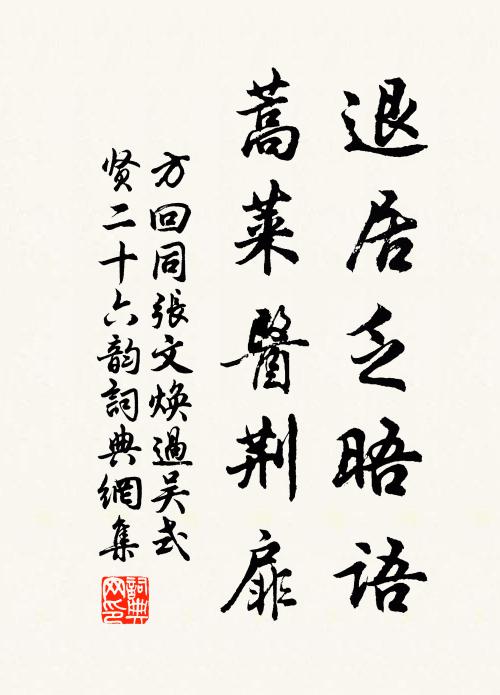 退居乏晤语
蒿莱醫荆扉
方回同張文焕過吴式
贤二十六韵詞典網集
詞典网印